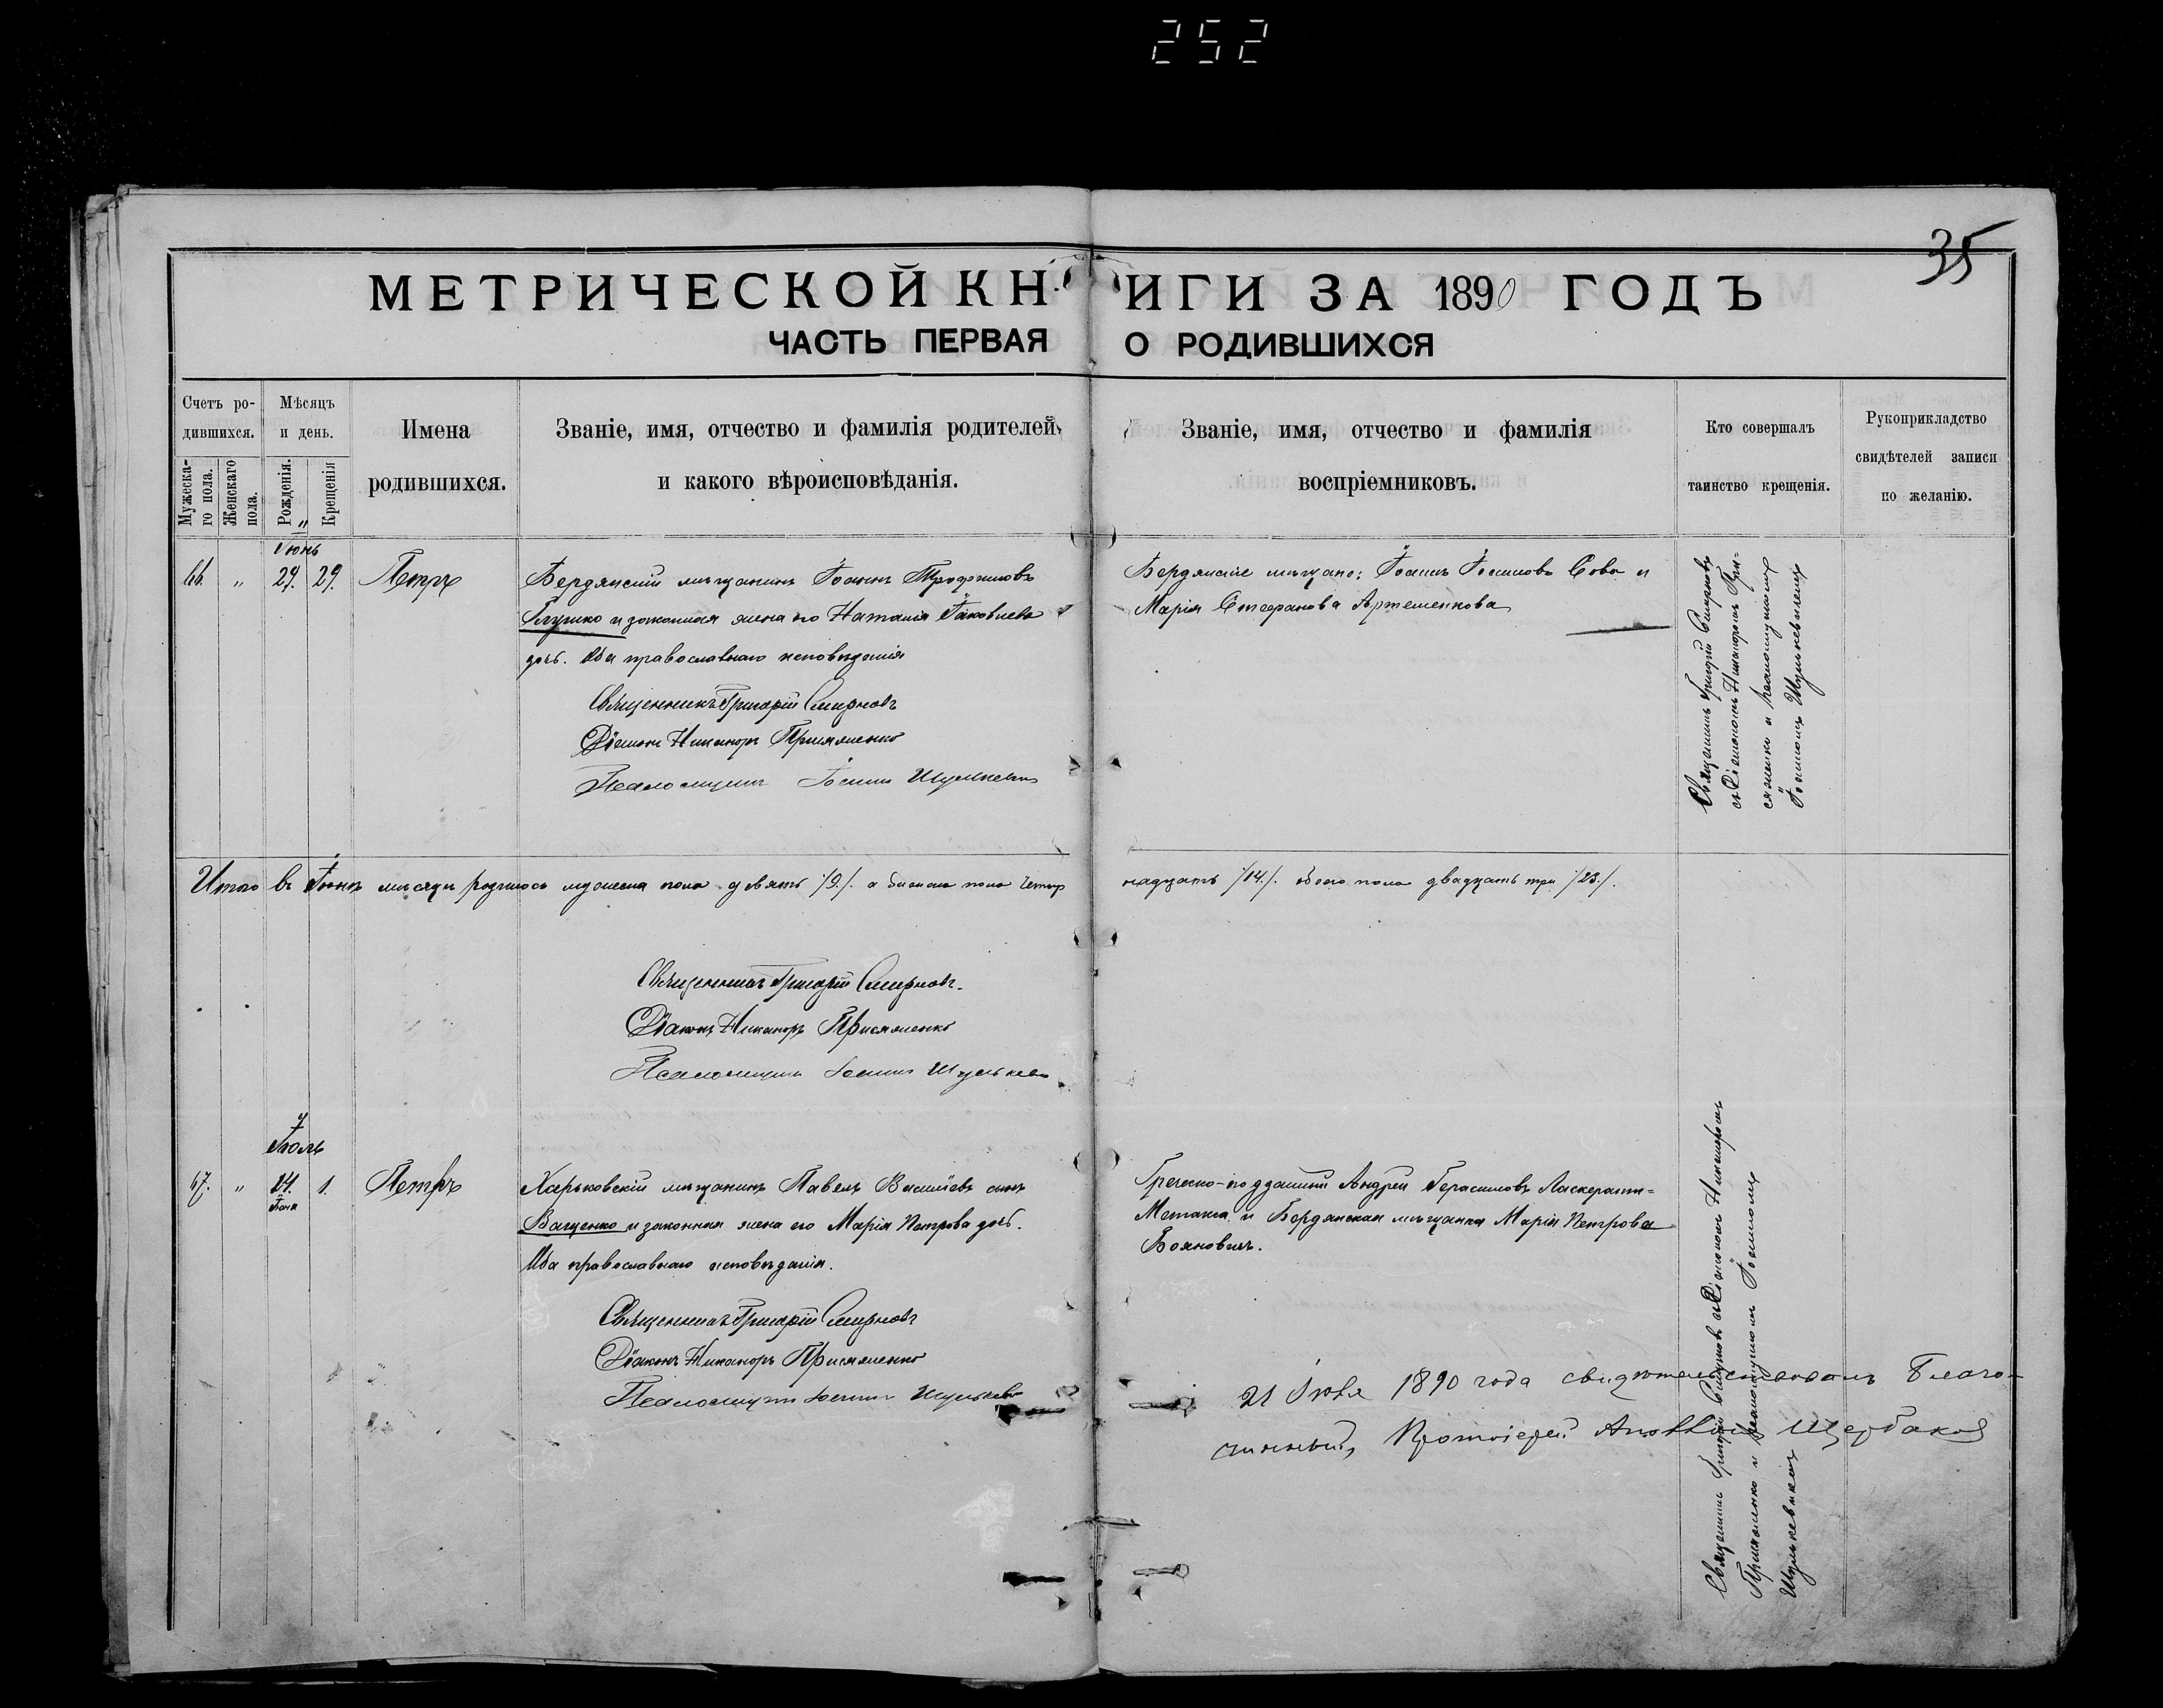 252
35
МЕТРИЧЕСКОЙ КНИГИ ЗА 1890 ГОДЪ
ЧАСТЬ ПЕРВАЯ О РОДИВШИХСЯ
Счетъ ро-
дившихся.
Мужеска-
го пола.
Женскаго
пола.
Мѣсяцъ
и день.
Рожденія.
Крещенія
Имена
родившихся.
Званіе, имя, отчество и фамилія родителей
и какого вѣроисповѣданія.
Званіе, имя, отчество и фамилія
воспріемниковъ.
Кто совершалъ
таинство крещенія.
Рукоприкладство
свидѣтелей записи
по желанію.
Іюнь
66. " 29. 29. Петръ
Бердянскій мѣщанинъ Іоаннъ Трофимовъ
Глушко и законная жена его Наталія Іаковлева
дочь. Оба православнаго исповѣданія
Священникъ Григорій Смирновъ
Діаконъ Никаноръ Присяженко
Псаломщикъ Іоаннъ
Бердянскіе мѣщане: Іоаннъ Іоанновъ Сова и
Марія Стефанова Артеменкова
Священникъ Григорій Смирновъ
съ Діакономъ Никаноромъ При-
сяженко и псаломщикомъ
Іоанномъ
Итого въ Іюнѣ мѣсяцѣ родилось мужеска пола девять /9./ а женска пола четыр
надцать /14./. обоего пола двадцать три /23./.
Священникъ Григорій Смирновъ.
Діаконъ Никаноръ Присяженко
Псаломщикъ Іоаннъ
Іюль
67. " 24. Іюня 1. Петръ
Харьковскій мѣщанинъ Павелъ Василіевъ сынъ
Ващенко и законная жена его Марія Петрова дочь.
Оба православнаго исповѣданія.
Священникъ Григорій Смирновъ
Діаконъ Никаноръ Присяженко
Псаломщикъ Іоаннъ
Греческо-подданный Андрей Герасимовъ
Метакса и Бердянская мѣщанка Марія Петрова
Бояновичъ.
Священникъ Григорій Смирновъ съ Діакономъ Никаноромъ
Присяженко и псаломщикомъ Іоанномъ
21 Іюля 1890 года свидѣтельствовалъ Благо-
чинный, Протоіерей Щербаковъ